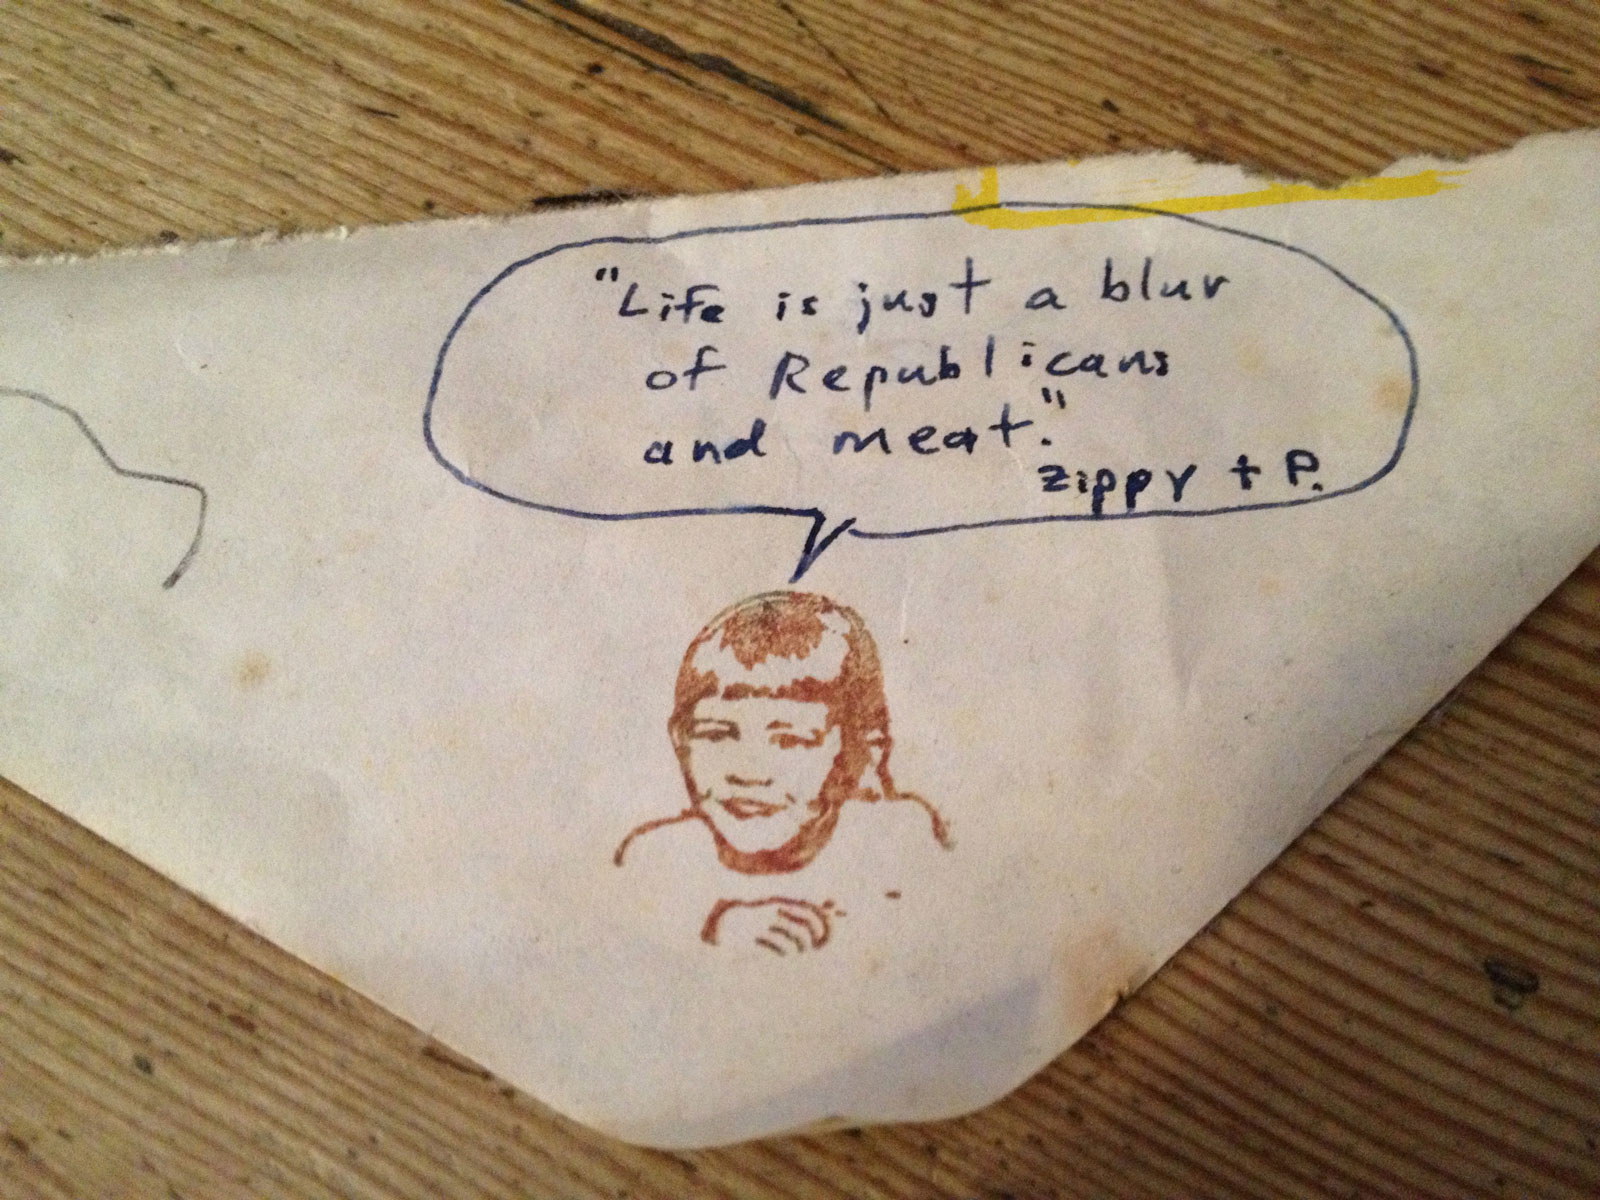 "Life is just a blur
of Republicans
and meat."
Zippy + P.